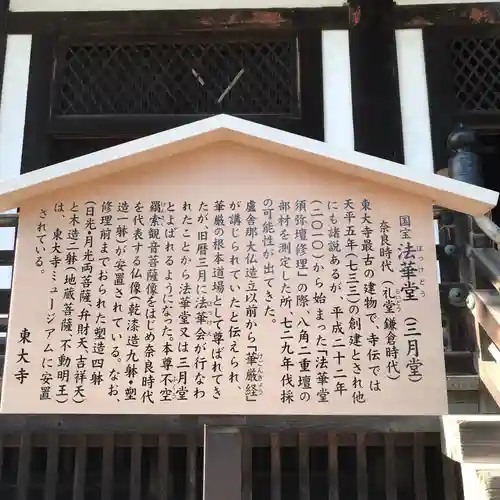 国宝 法華堂（三月堂）
ほっけどう
奈良時代（礼堂 鎌倉時代）
らいどう
東大寺最古の建物で、寺伝では
天平五年（七三三）の創建とされ他
にも諸説あるが、平成二十二年
（二〇一〇）から始まった「法華堂
須弥壇修理」の際、八角二重壇の
部材を測定した所、七二九年伐採
の可能性が出てきた。
盧舎那大仏造立以前から「華厳経」
けごんきょう
が講じられていたと伝えられ、
華厳の根本道場として尊ばれてき
たが、旧暦三月に法華会が行なわ
れたことから法華堂又は三月堂
とよばれるようになった。本尊不空
羂索観音菩薩像をはじめ奈良時代
を代表する仏像（乾漆造九躰・塑
造一躰）が安置されている。なお、
修理前までおられた塑造四躰
（日光・月光両菩薩、弁財天吉祥天）
と木造二躰（地蔵菩薩 不動明王）
は、東大寺ミュージアムに安置
されている。
東大寺